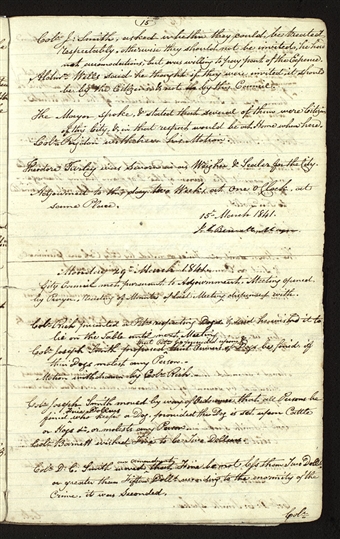 15
Colr. J. Smith, asked whether they could be treated
respectably, otherwise they should not be invited, he had
not accomodations; but was willing to pay part of the Expence.
Aldn. Wells said he thought if they were invited it should
be by the Citizens & not by this Council.
The Mayor spoke, & stated that several of them were Citizens
of this City, & in that respect would be at Home when here.
withdrew his Motion.
Theodore Turley was sworn in as Weigher & Sealer for the City.
Adjourned to this day two Weeks at One O'Clock, at
same Place.
15th March 1841.
Mayor
29th March 1841
City Council met pursuant to Adjournment. Meeting opened
by Prayer. Reading of Minutes of last Meeting dispensed with.
Colr. Rich presented a Bill respecting Dogs & said he wished it to
lie on the Table until next Meeting
Colr. Joseph Smith proposed that Owners of Dogs be fined if
their Dogs molest any Person.
Motion withdrawn by Colr. Rich.
Colr. Joseph Smith moved by way of Ordinance that all Persons be
fined Five Dollars who keeps a Dog, provided the Dog is set upon Cattle
or Hogs &c, or molests any Person.
Colr. Bennett wished Fine to be Two Dollars
Colr. D. C. Smith moved an amendment that Fine be not less than Two Dolls.
or greater than Fifteen Dolls. according to the enormity of the
Crime. it was Seconded.
Colr.